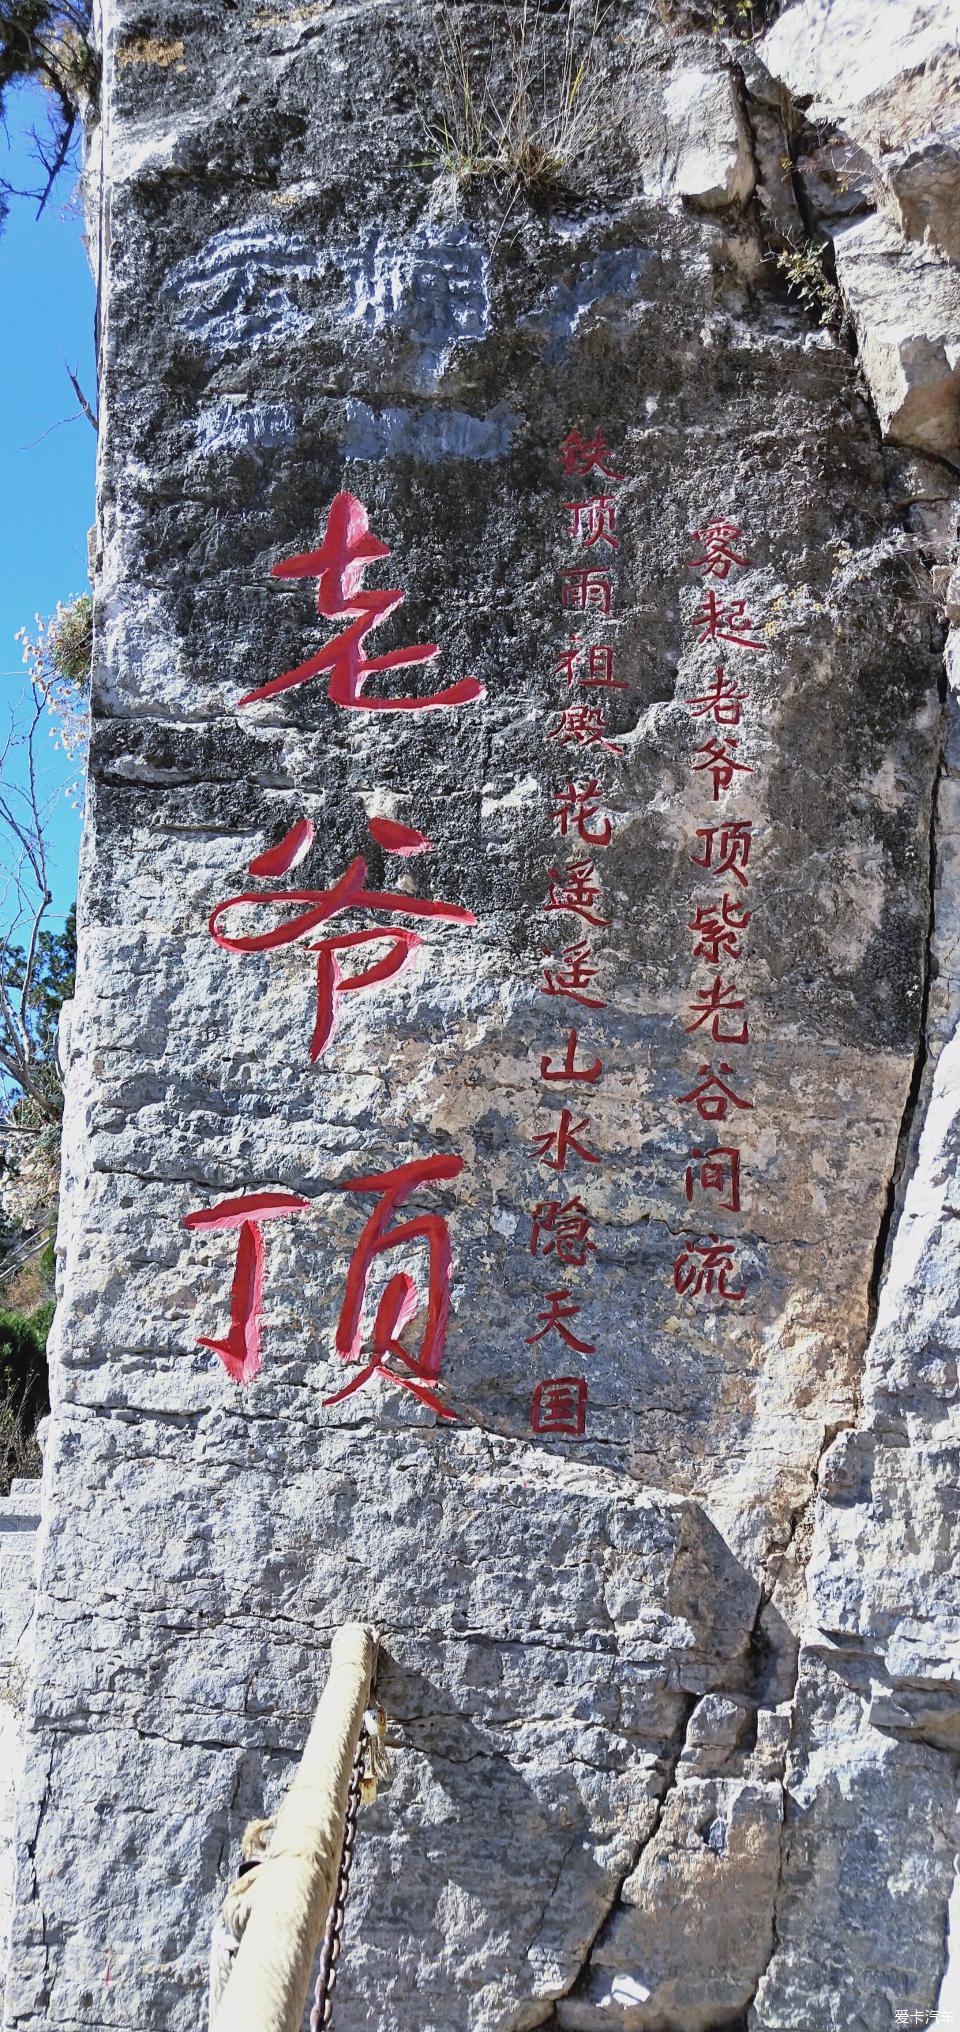 雾起老爷顶紫光谷间流
铁顶雨祖殿花遥遥山水隐天国
老爷顶
爱卡汽车